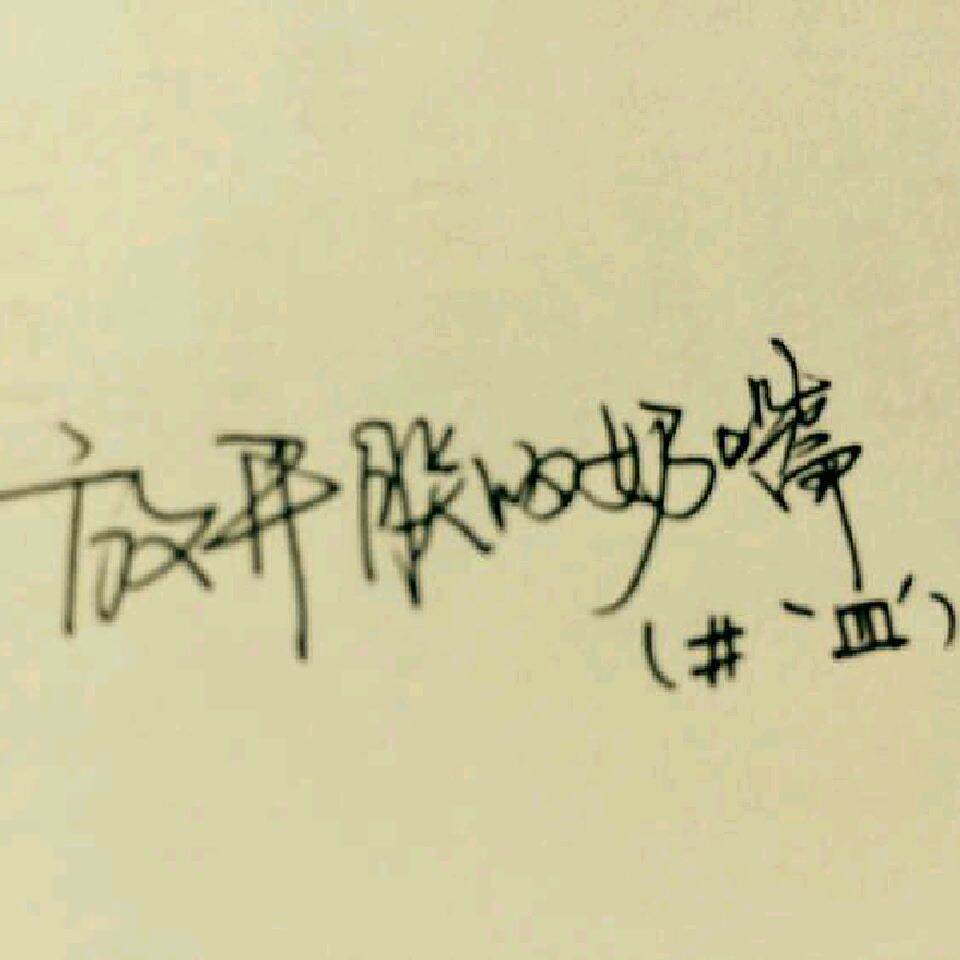 放开朕的奶嘴
(#`皿´)